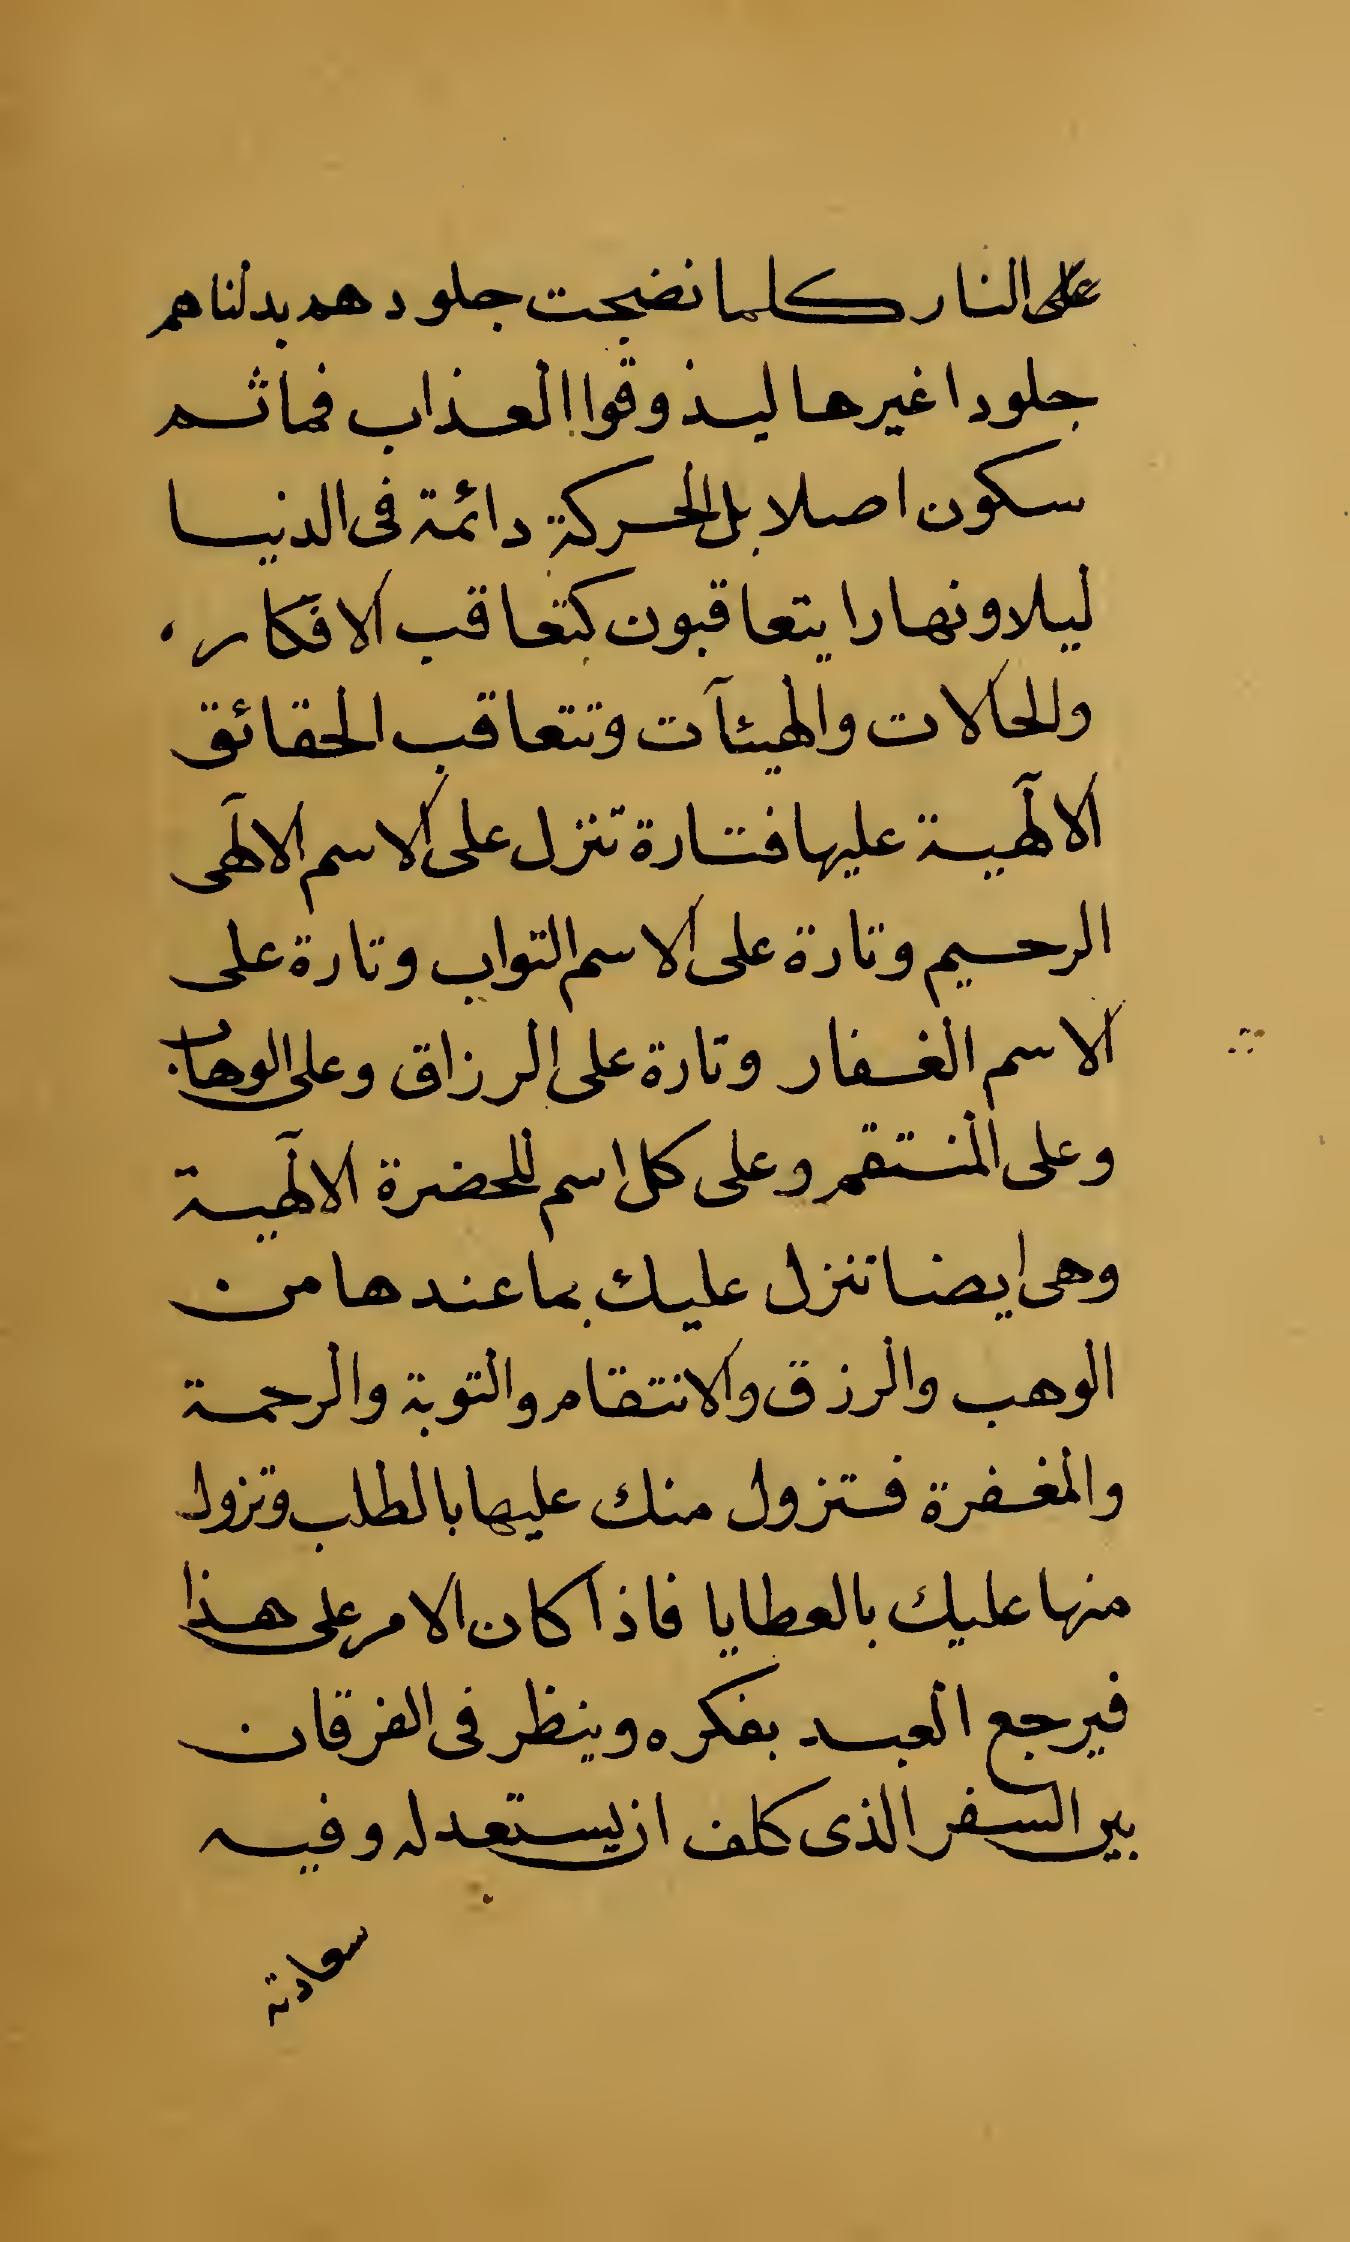 على النار كلما نضجت جلودهم بدلناهم
جلودا غيرها ليذوقوا العذاب فما ثم
سكون اصلا بل الحركة دائمة فى الدنيا
ليلا ونهارا يتعاقبون كتعاقب الافكار
والحالات والهيئآت وتتعاقب الحقائق
الالٓهية عليها فتارة تنزل على الاسم الالٓهى
الرحيم وتارة على الاسم التواب وتارة على
الاسم الغفار وتارة على الرزاق وعلى الوهاب
وعلى المنتقم وعلى كل اسم للحضرة الالٓهية
وهى ايضا تنزل عليك بما عندها من
الوهب والرزق والانتقام والتوبة والرحمة
والمغفرة فتزول منك عليها بالطلب وتزول
منها عليك بالعطايا فاذا كان الامر على هذا
فيرجع العبد بفكره وينظر فى الفرقان
بين السفر الذى كلف ان يستعد له وفيه
سعادته